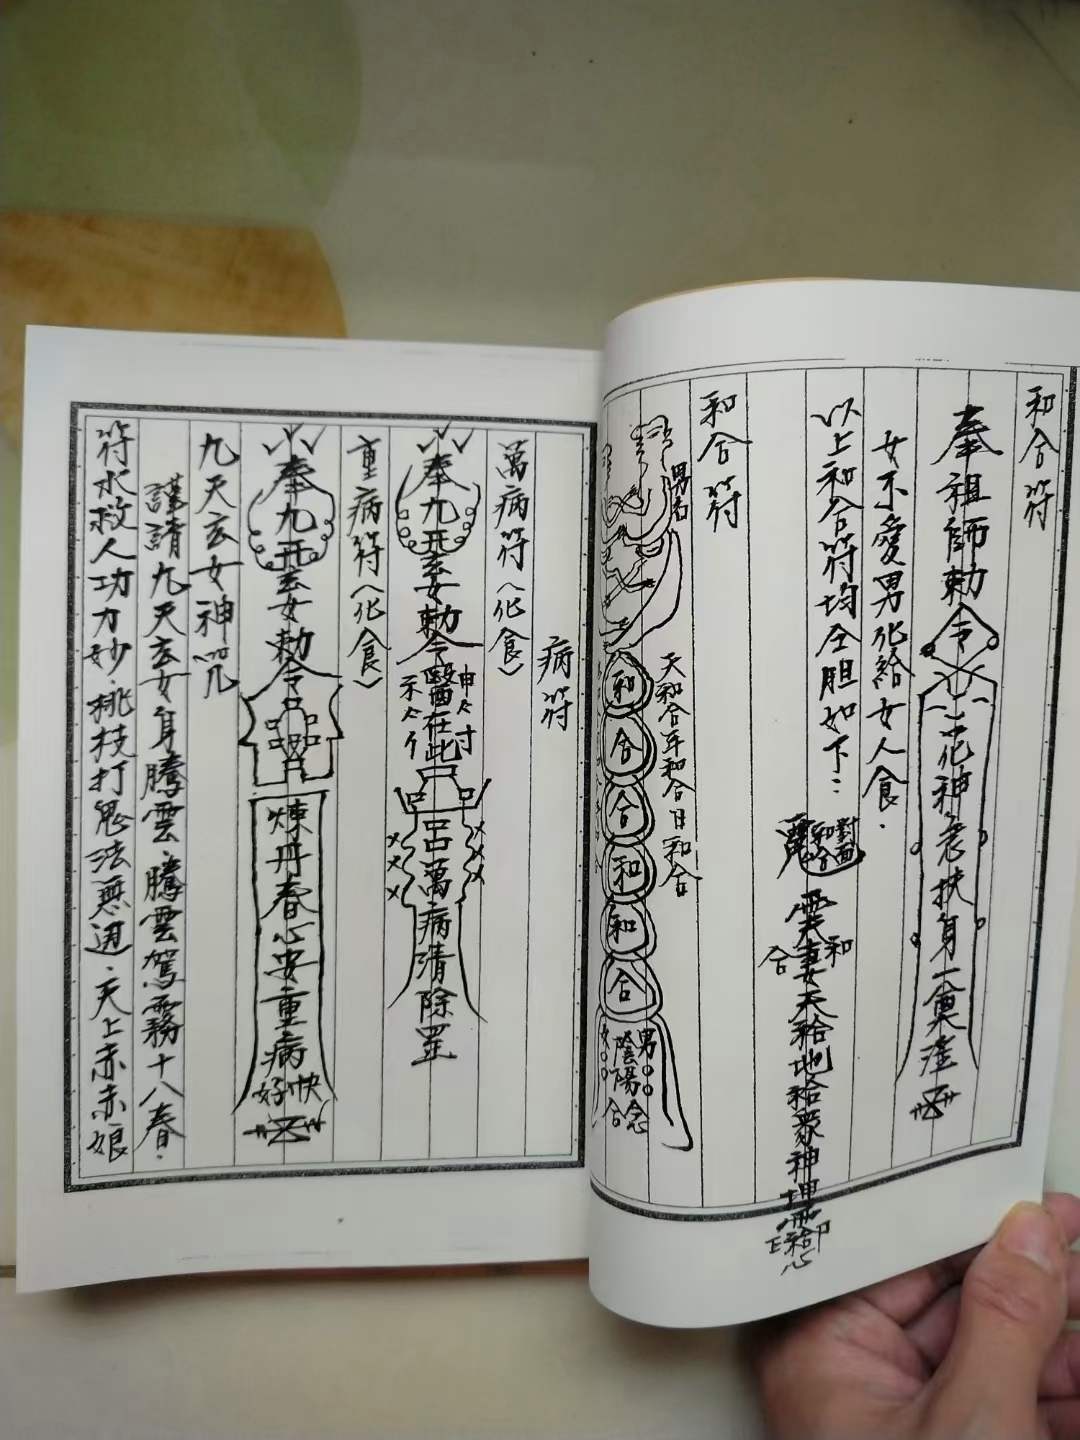 和合符
奉祖師勅令
化神急扶身
女不愛男化給女人食.
以上和合符均全胆如下：
對面和合
和合
妻天和合地和合眾神
和合符
男名
天和合年和合日和合
和
合
合
和
和
合
男
女
陰陽合念
病符
萬病符〈化食〉
奉九天玄女勅令醫在此
萬病清除罡
重病符〈化食〉
奉九天玄女勅令
煉丹春心安重病
快好
九天玄女神咒
謹請九天玄女身騰雲.騰雲駕霧十八春.
符水救人功力妙.桃枝打鬼法無边.天上赤赤娘